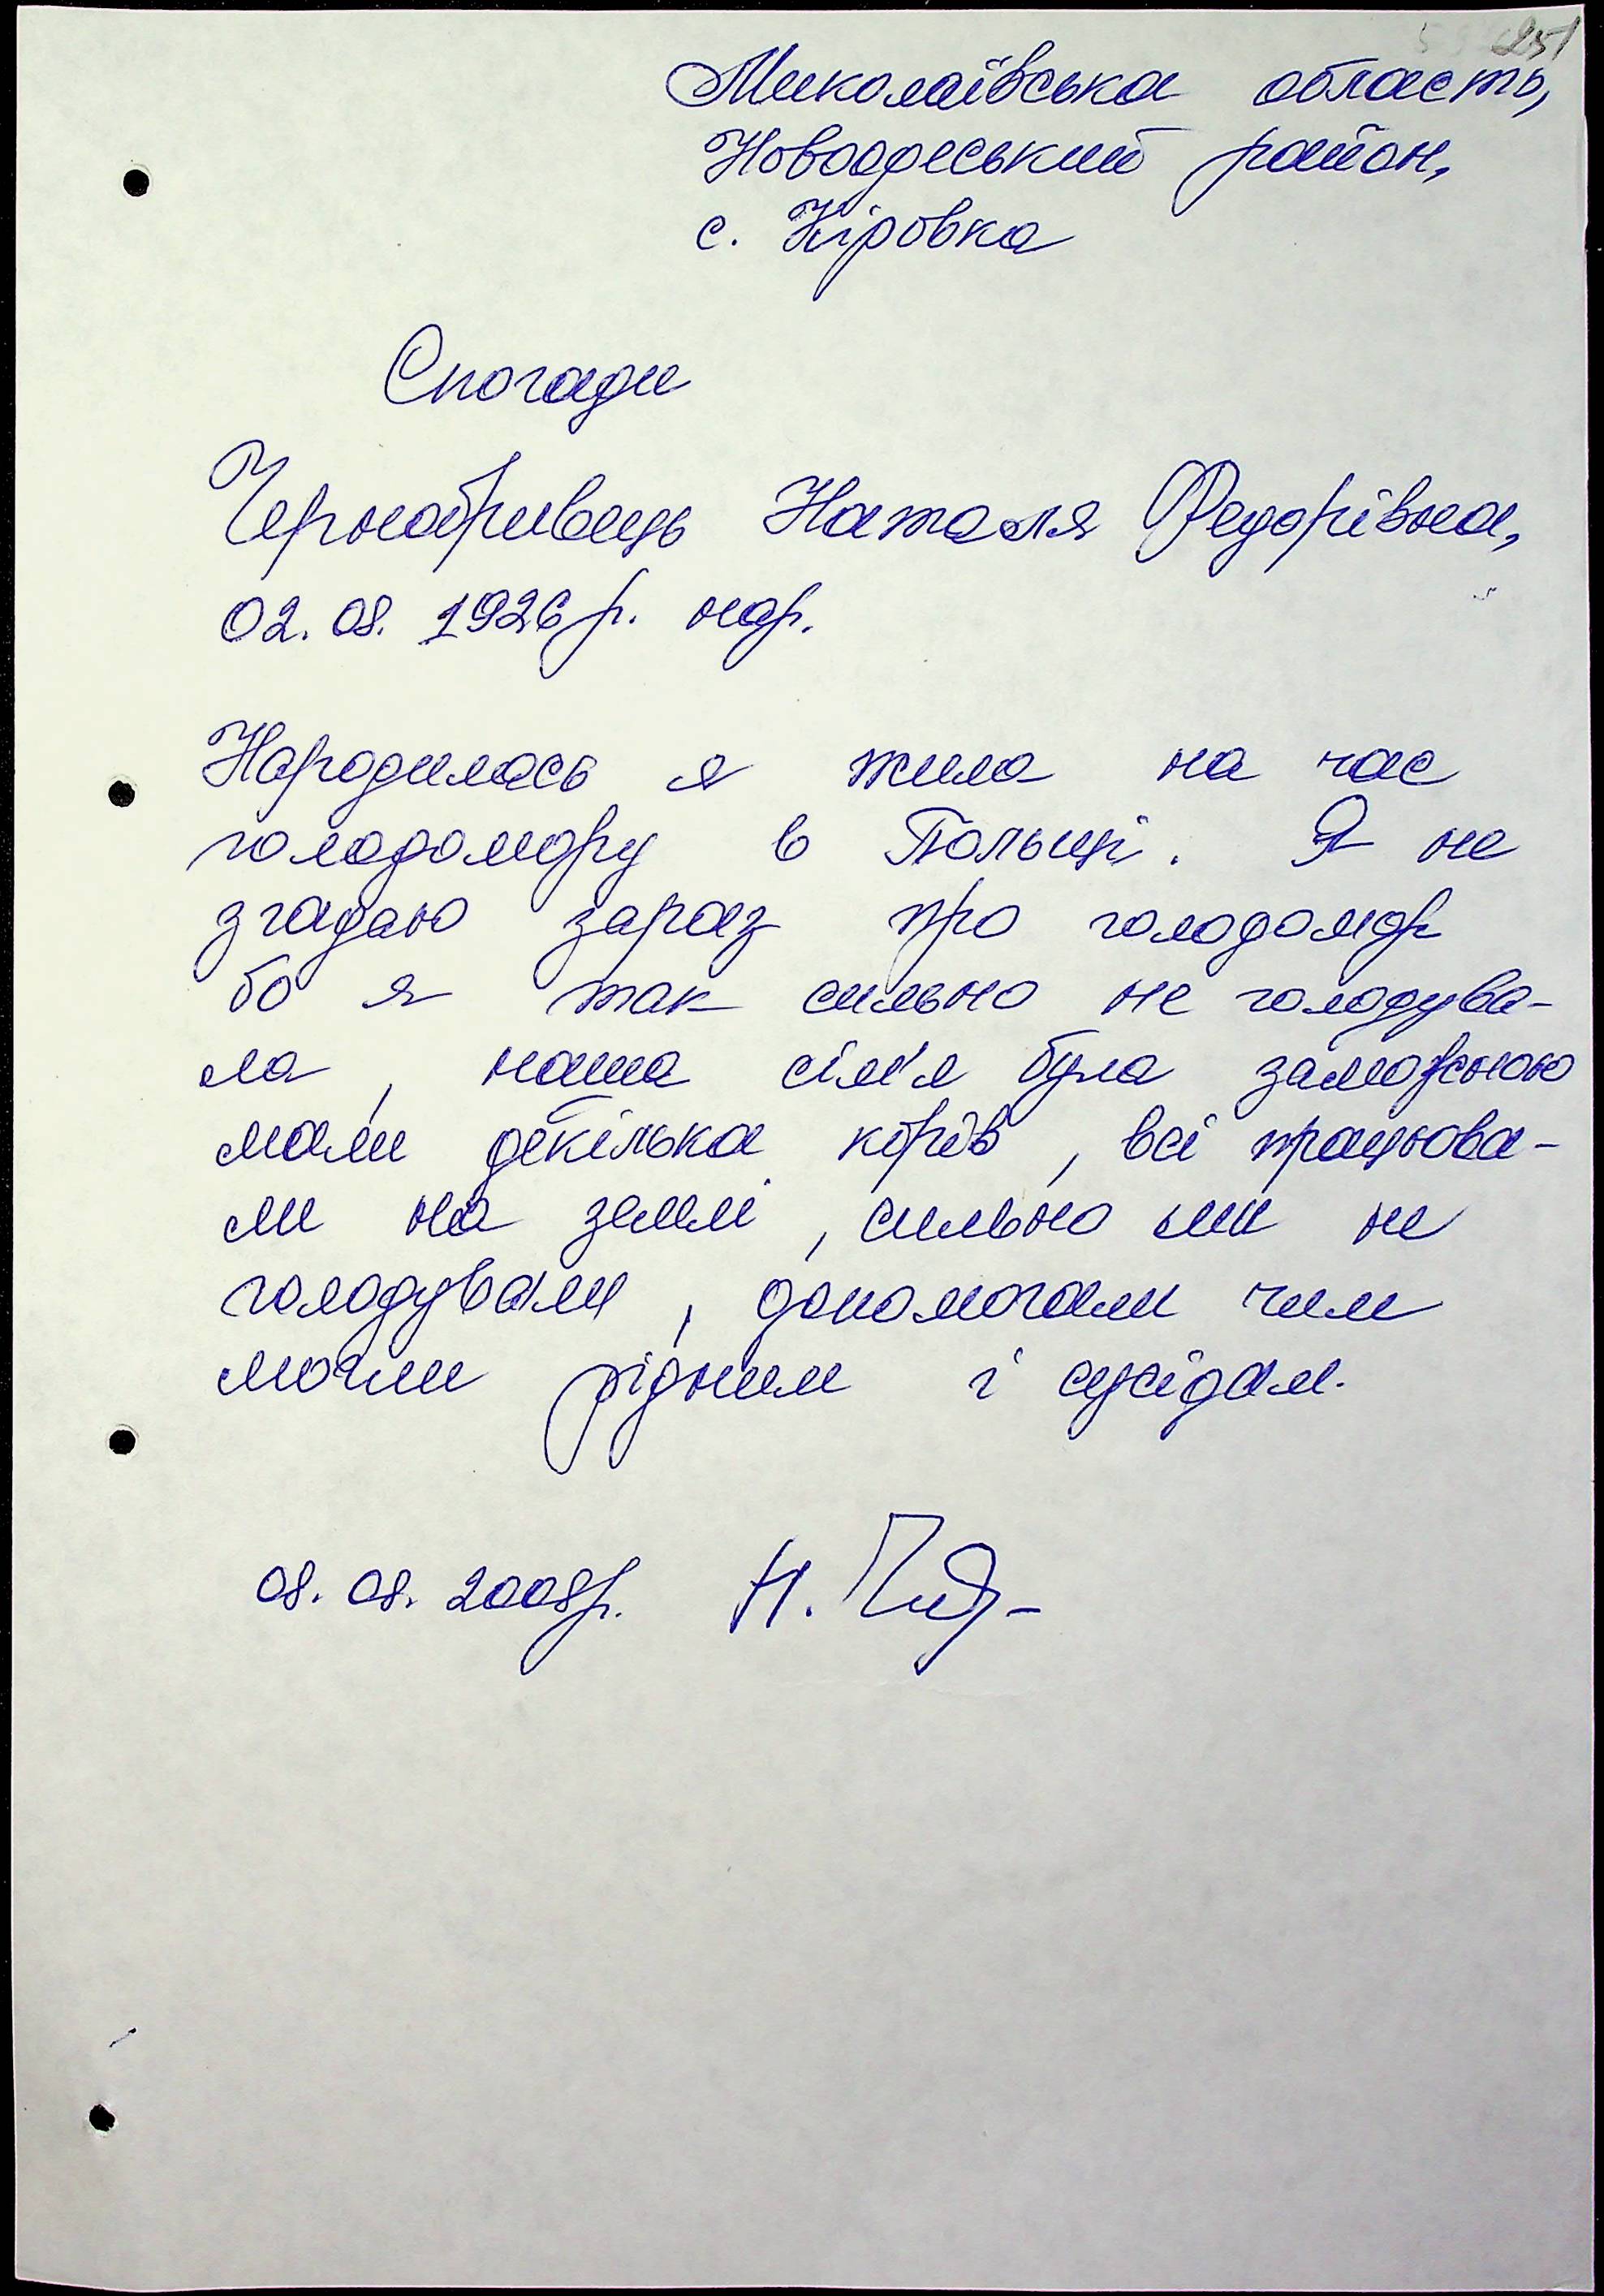 251
Миколаївська область,
Новоодеський район,
с. Кіровка
Спогади
Чернобривець Наталя Федорівна,
02.08.1926 р. нар.
Народилась я жила на час
голодомору в Польщі. Я не
згадаю зараз про голодомор
бо я так сильно не голодува-
ла, наша сім'я була заможною
мали декілька корів, всі працюва-
ли на землі, сильно ми не
голодували, допомогали чим
могли рідним і сусідам.
08.08.2008р. Н.